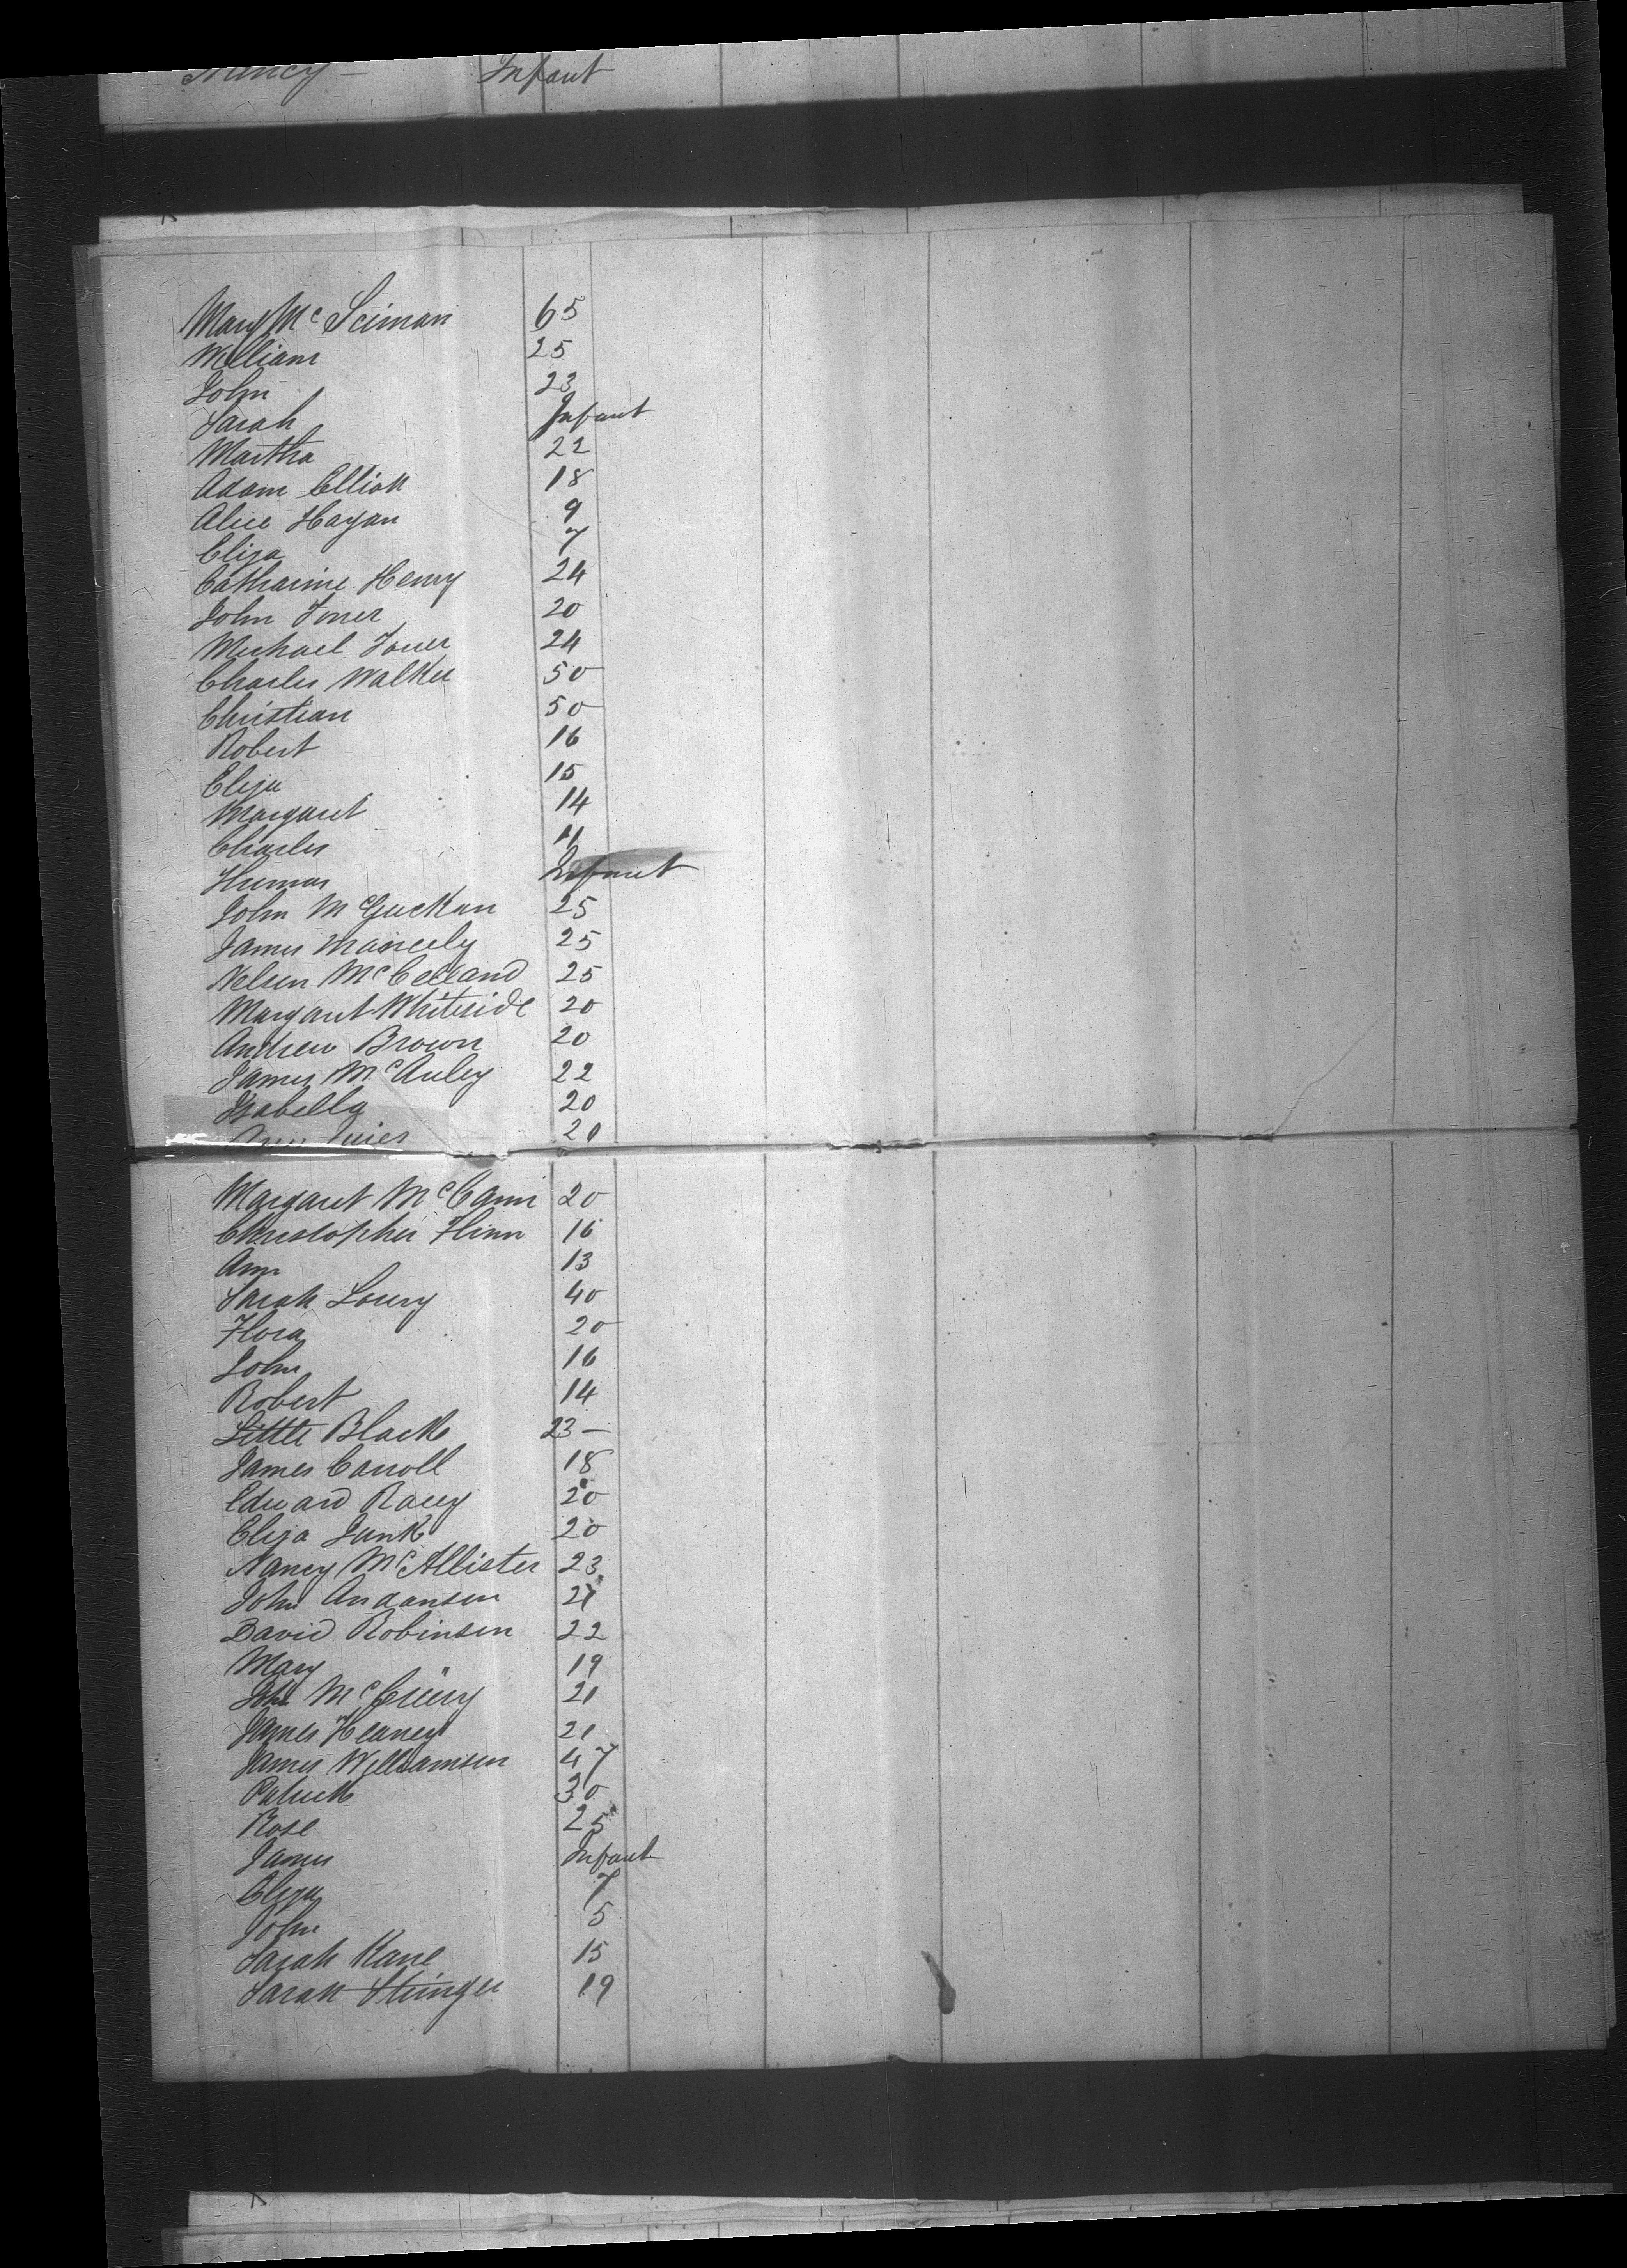 Nancy — Infant
Mary Mc Sciman 65
William 25
John 23
Sarah Infant
Martha 22
Adam Elliott 18
Alice Hagan 9
Eliza 7
Catharine Henry 24
John Toner 20
Michael Toner 24
Charles Walker 50
Christian 50
Robert 16
Eliza 15
Margaret 14
Charles 11
Infant
John McGuckan 25
James 25
Nelson McClelland 25
Margaret Whiteside 20
Andrew Brown 20
James McAuley 22
Isabella 20
20
Margaret McCann 20
Christopher Flinn 16
Ann 13
Sarah Lowry 40
Flora 20
John 16
Robert 14
Little Black 23 —
James Carroll 18
Edward Racey 20
Eliza Junk 20
Nancy McAllister 23
John Andanson 21
David Robinson 22
Mary 19
John 21
James Heaney 21
James Williamson 47
Patrick 30
Rose 25
James Infant
Eliza 7
John 5
Sarah Kane 15
Sarah Stringer 19